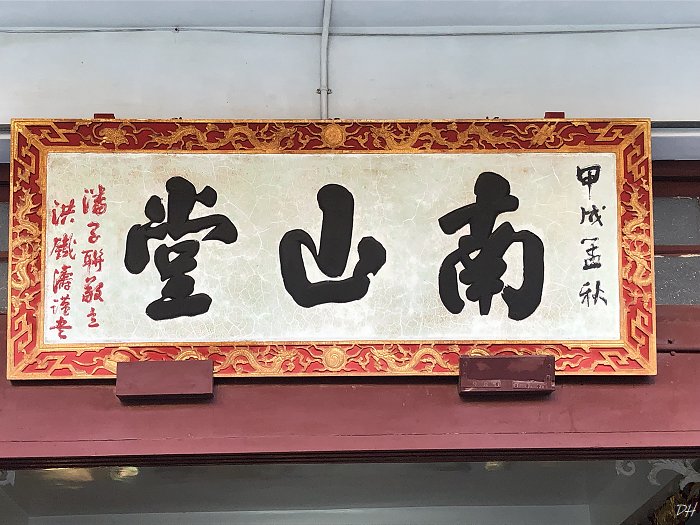 甲戌孟秋
南山堂
潘子聯敬立
洪鐵濤謹書
DH